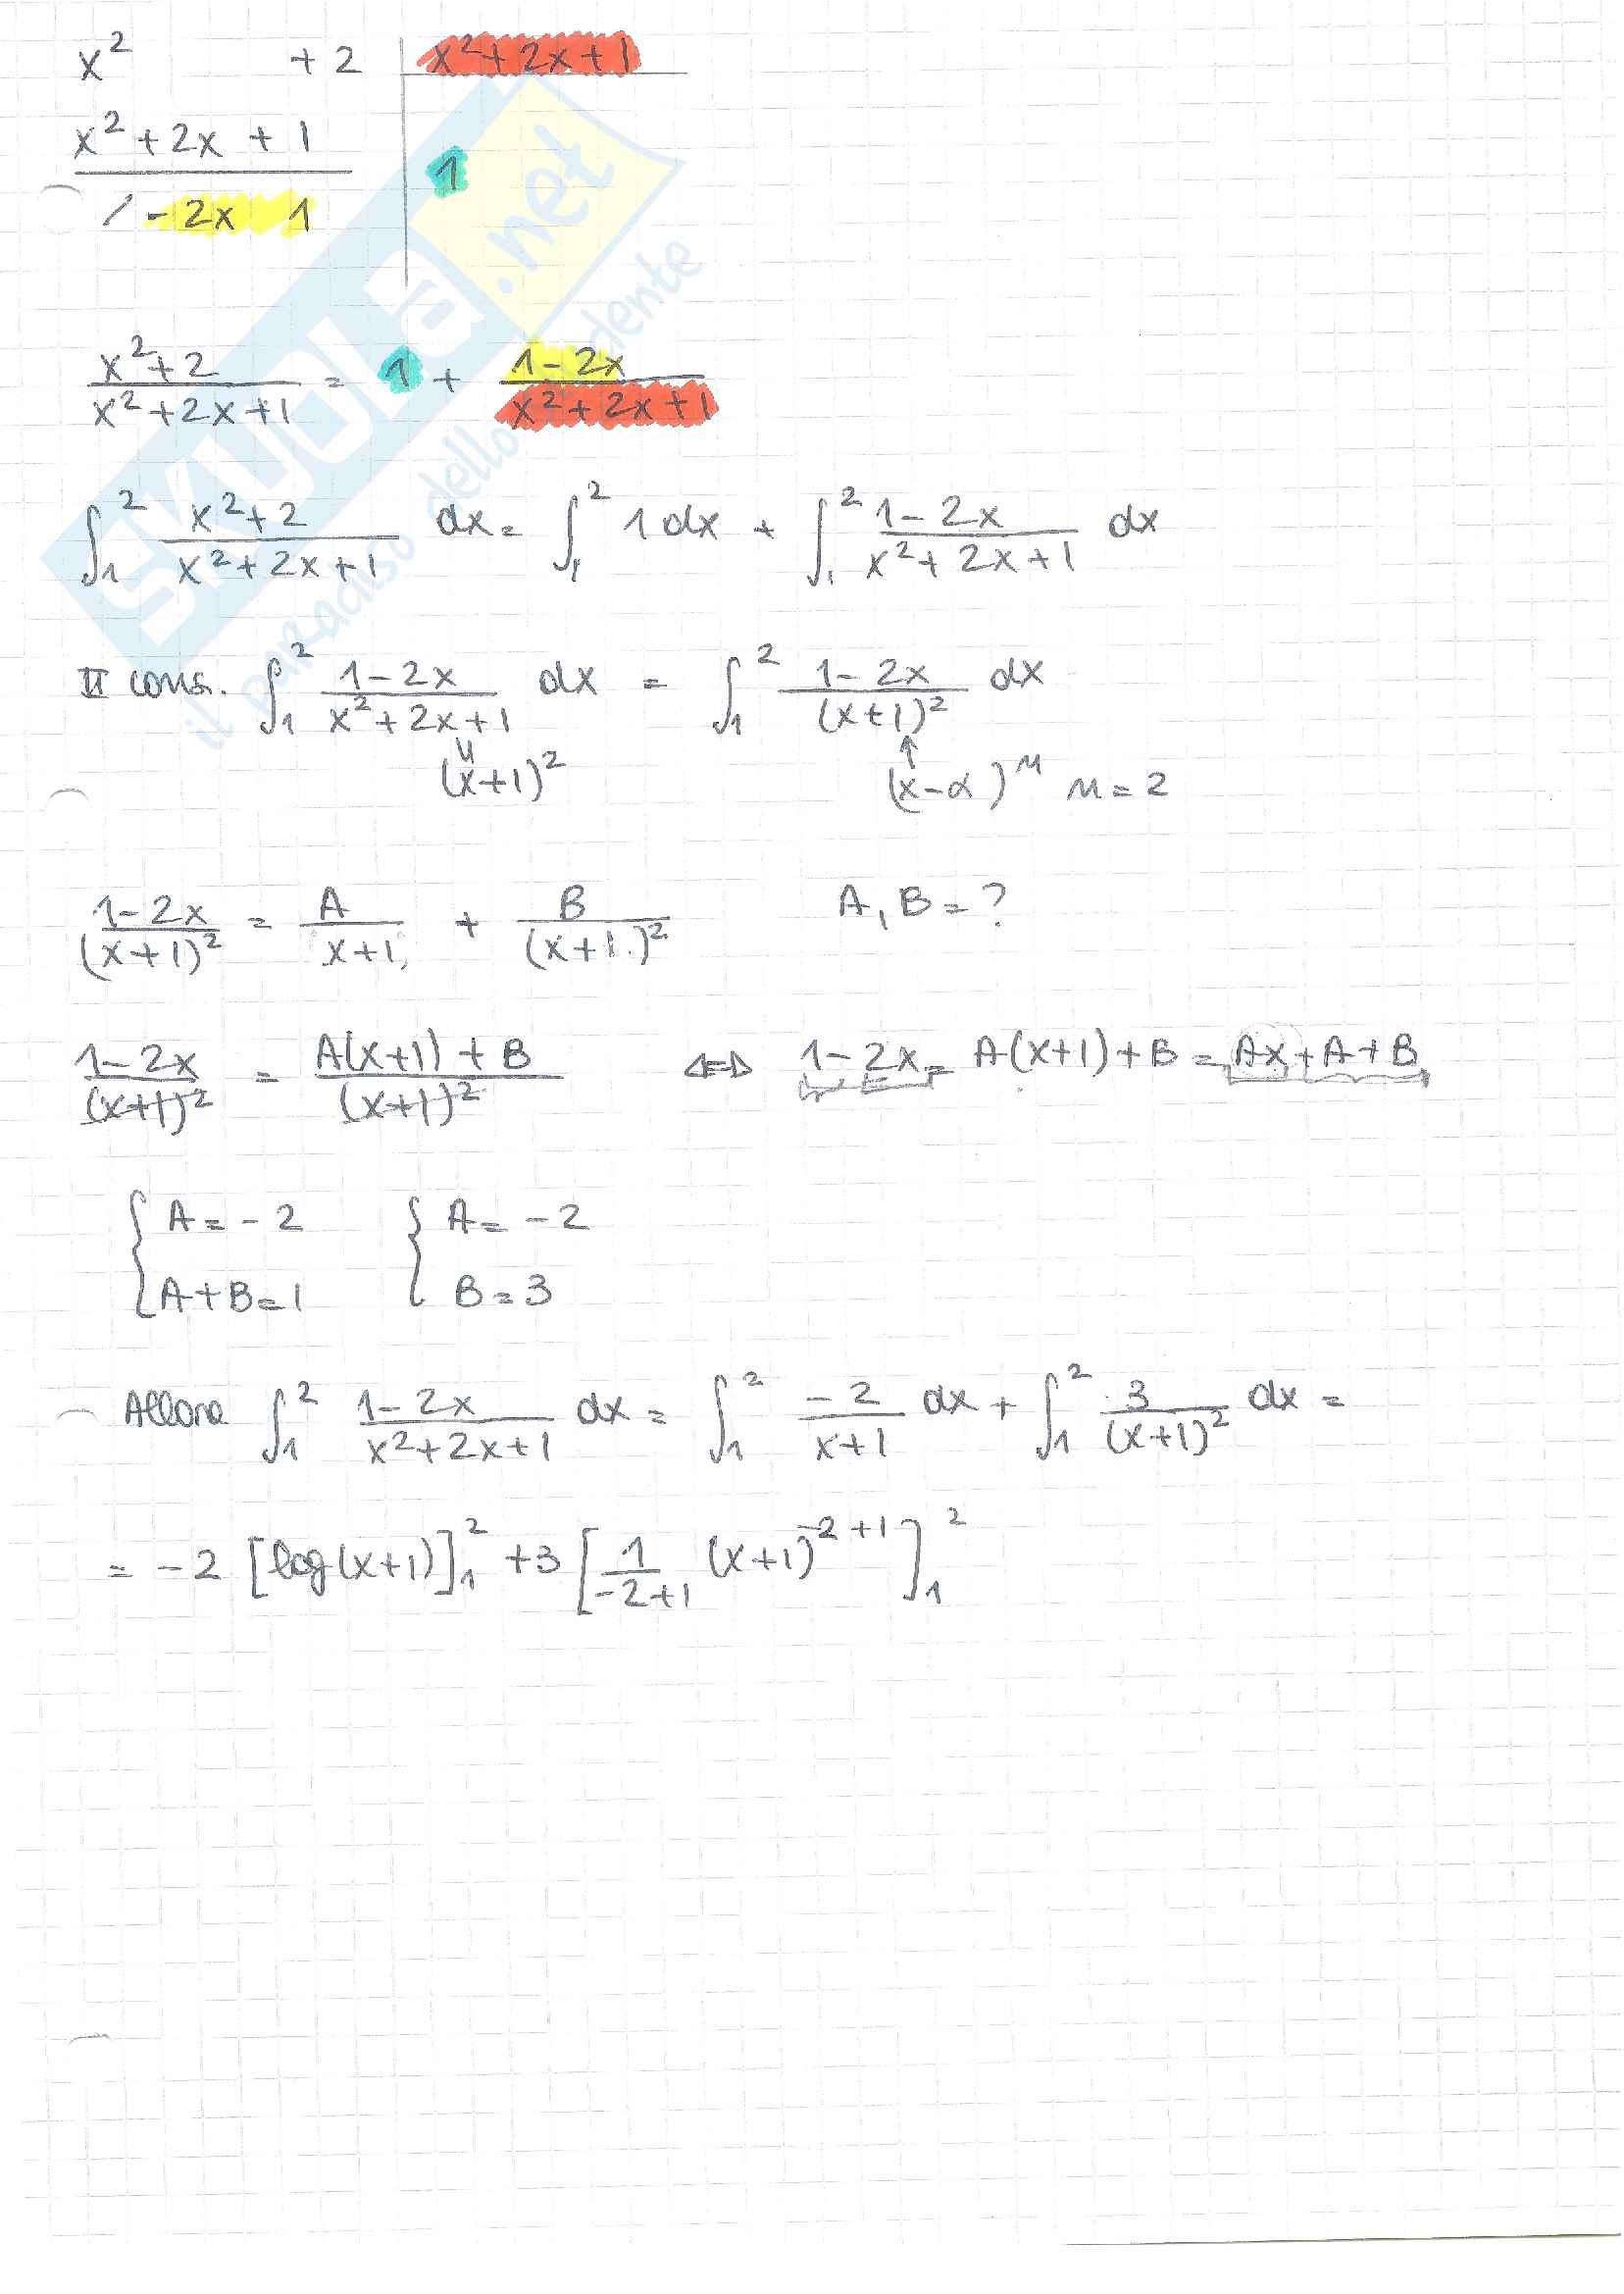 x² + 2 | x² + 2x + 1
x² + 2x + 1
1
/ - 2x 1
SKUOLa.net
il paradiso dello studente
x²+2 / x²+2x+1 = 1 + 1-2x / x²+2x+1
∫₁² x²+2 / x²+2x+1 dx = ∫₁² 1 dx + ∫₁² 1-2x / x²+2x+1 dx
II cons. ∫₁² 1-2x / x²+2x+1 dx = ∫₁² 1-2x / (x+1)² dx
(x+1)² ↑ (x-α)ⁿ n=2
1-2x / (x+1)² = A / x+1 + B / (x+1)² A, B = ?
1-2x / (x+1)² = A(x+1)+B / (x+1)² ⇔ 1-2x = A(x+1)+B = Ax+A+B
{ A = -2 { A = -2
A+B=1 B=3
Allora ∫₁² 1-2x / x²+2x+1 dx = ∫₁² -2 / x+1 dx + ∫₁² 3 / (x+1)² dx =
= -2 [log(x+1)]₁² +3 [1 / -2+1 (x+1)⁻²⁺¹]₁²